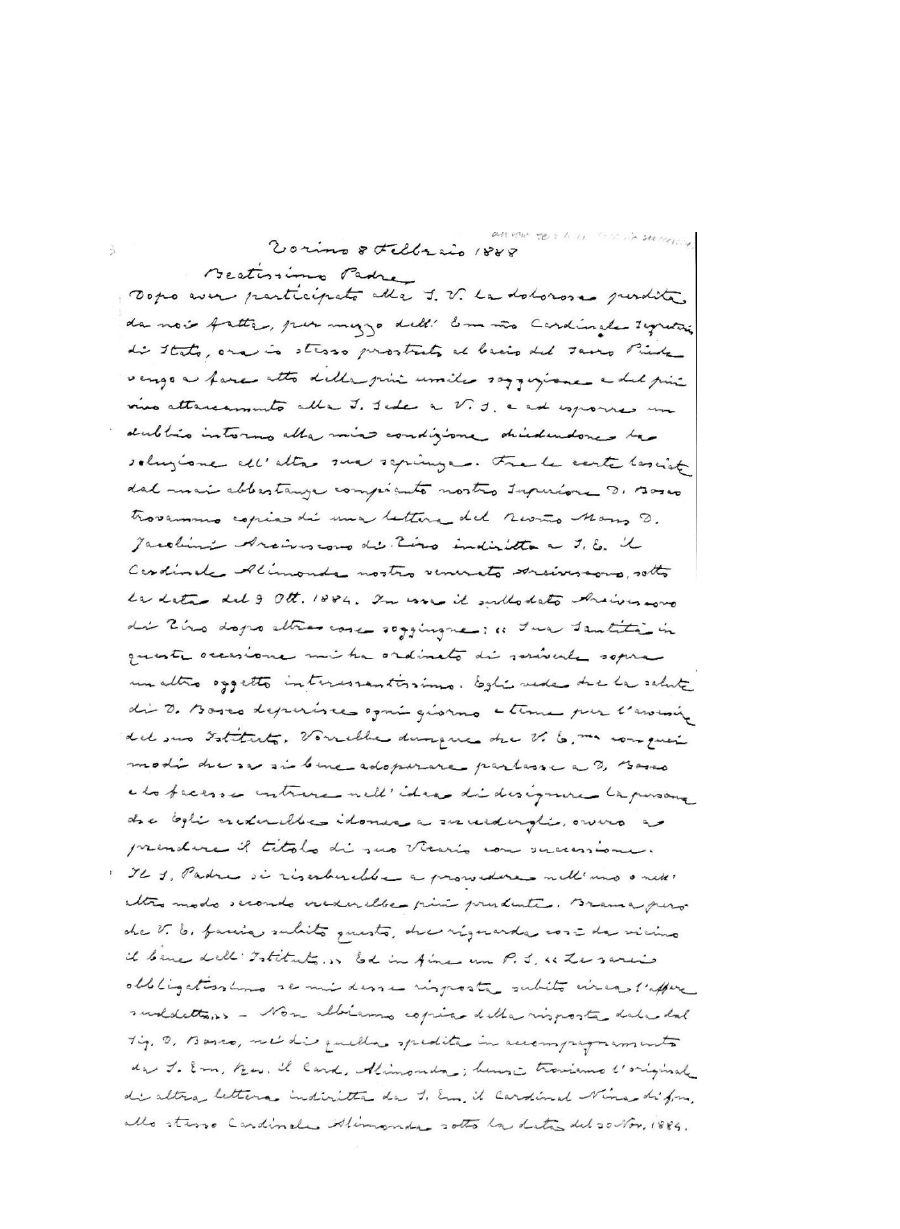 Torino 8 Febbraio 1888
Beatissimo Padre
Dopo aver participato alla S. V. la dolorosa perdita
da noi fatta, per mezzo dell' Em mo Cardinale Segretario
di Stato, ora io stesso prostrato al bacio del Sacro Piede
vengo a fare atto della più umile soggezione e del più
vivo attaccamento alla S. Sede a V. S. e ad esporre un
dubbio intorno alla mia condizione chiedendone la
soluzione all'alta sua sapienza. Fra le carte lasciate
dal mai abbastanza compianto nostro Superiore D. Bosco
trovammo copia di una lettera del Revmo Mons D.
Jacobini Arcivescovo di Tiro indiritta a S. E. il
Cardinale Alimonda nostro venerato Arcivescovo, sotto
la data del 9 Ott. 1884. In essa il sullodato Arcivescovo
di Tiro dopo altre cose soggiugne: « Sua Santità in
questa occasione mi ha ordinato di scriverle sopra
un altro oggetto interessantissimo. Egli vede che la salute
di D. Bosco deperisce ogni giorno e teme per l'avvenire
del suo Istituto. Vorrebbe dunque che V. E.ma con quei
modi che sa sì bene adoperare parlasse a D. Bosco
e lo facesse entrare nell'idea di designare la persona
che Egli crederebbe idonea a succedergli, ovvero a
prendere il titolo di suo Vicario con successione.
Il S. Padre si riserberebbe a provvedere nell'uno o nell'
altro modo secondo crederebbe più prudente. Brama però
che V. E. faccia subito questo, che riguarda così da vicino
il bene dell'Istituto. » Ed in fine un P. S. « Le sarei
obbligatissimo se mi desse risposta subito circa l'affare
suddetto. » - Non abbiamo copia della risposta data dal
Sig. D. Bosco, nè di quella spedita in accompagnamento
da S. Em. Rev. il Card. Alimonda; bensì troviamo l'originale
di altra lettera indiritta da S. Em. il Cardinal Nina di f.m.
allo stesso Cardinale Alimonda sotto la data del 30 Nov. 1884.